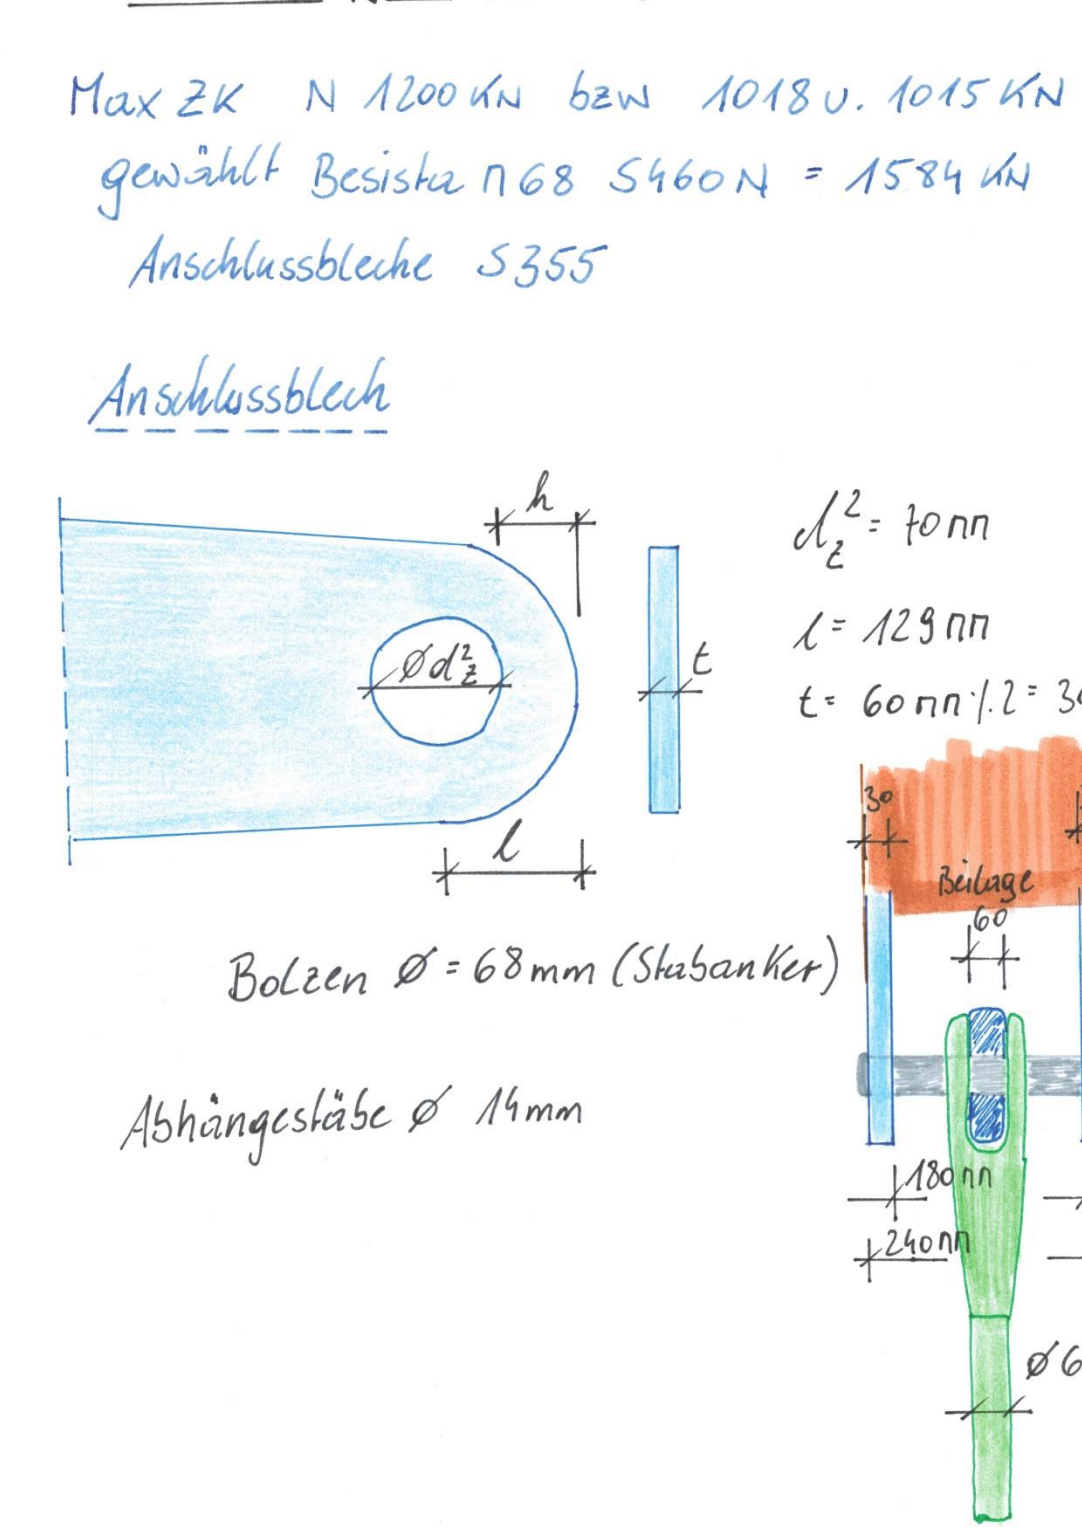 Max ZK N 1200 KN bzw 1018 u. 1015 KN
gewählt Besista M68 S460N = 1584 KN
Anschlussbleche S355
Anschlussblech
h
d²z = 70mm
Ød²z
l = 129mm
t
t = 60mm ./. 2 =
l
30
Beilage
60
Bolzen Ø = 68mm (Stabanker)
Abhängestäbe Ø 14mm
180mm
240mm
Ø6